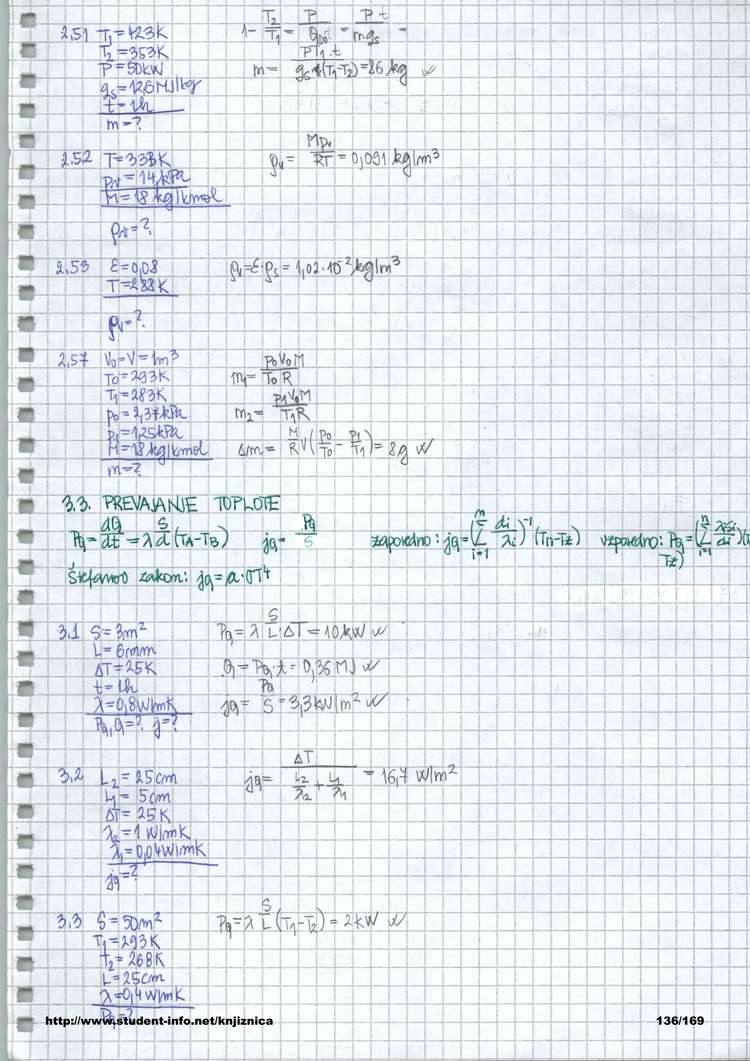 2.51 T₁ = 423K
T₂ = 353K
P = 50kW
qs = 12,6 MJ/kg
t = 1h
m = ?
1 - T₂/T₁ = P/Qdot = P t/mqs =
m = PT₁·t/qs(T₁-T₂) = 86 kg
2.52 T = 333K
pv = 14 kPa
M = 18 kg/kmol
ρv = ?
ρv = Mpv/RT = 0,091 kg/m³
2.53 ε = 0,08
T = 288K
ρv = ?
ρv = ε·ρs = 1,02·10⁻² kg/m³
2.57 V₀ = V = 1m³
T₀ = 293K
T₁ = 283K
p₀ = 2,37kPa
p₁ = 1,25kPa
M = 18 kg/kmol
m = ?
m₁ = p₀V₀M/T₀R
m₂ = p₁V₀M/T₁R
Δm = M/R V(p₀/T₀ - p₁/T₁) = 8g
3.3. PREVAJANJE TOPLOTE
PQ = dQ/dt = λ S/d (TA-TB) jQ = PQ/S zaporedno: jQ = (Σ di/λi)⁻¹ (Tn-Tz) vzporedno: PQ = (Σ λiSi/di)(T
Tz)
Štefanov zakon: jQ = a·σT⁴
3.1 S = 3m²
L = 6mm
ΔT = 25K
t = 1h
λ = 0,8W/mK
PQ, Q = ? j = ?
PQ = λ S/L·ΔT = 10kW
Q = PQ·t = 0,36 MJ
jQ = PQ/S = 3,3kW/m²
3.2 L₂ = 25cm
L₁ = 5cm
ΔT = 25K
λ₂ = 1 W/mK
λ₁ = 0,04W/mK
jQ = ?
jQ = ΔT/(L₂/λ₂ + L₁/λ₁) = 16,7 W/m²
3.3 S = 50m²
T₁ = 293K
T₂ = 268K
L = 25cm
λ = 0,4W/mK
PQ = ?
PQ = λ S/L (T₁-T₂) = 2kW
http://www.student-info.net/knjiznica
136/169